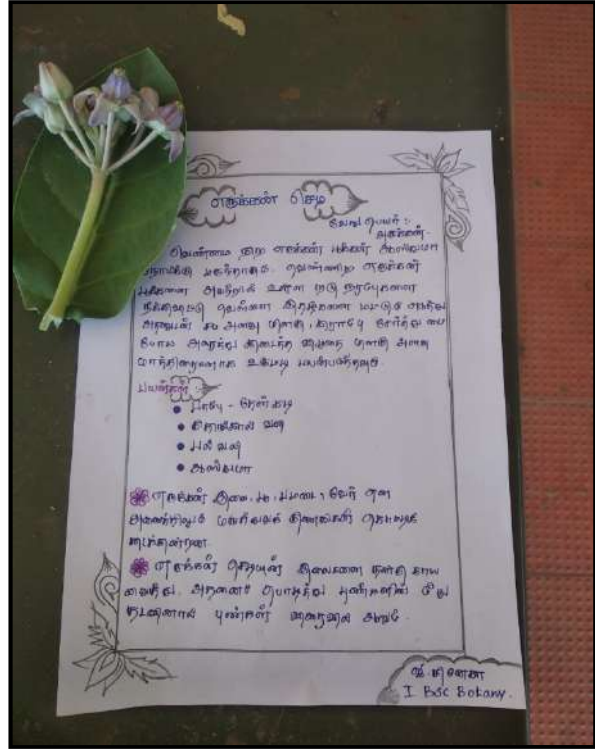 எருக்கன் செடி
வேறு பெயர் :-
அருக்கன்.
வெண்மை நிற எருக்கன் பூக்கள் ஆஸ்துமா
நோய்க்கு மருந்தாகும். வெண்ணிற எருக்கன்
பூக்களை அவற்றில் உள்ள நடு நரம்புகளை
நீக்கிவிட்டு வெள்ளை இதழ்களை மட்டும் எடுத்து
அதனுடன் சம அளவு மிளகு, கிராம்பு சேர்த்து மை
போல அரைத்து கிடைத்த விழுதை மிளகு அளவு
மாத்திரைகளாக உருட்டி பயன்படுத்தவும்.
பயன்கள் :-
பாம்பு - தேள் கடி
பல் வலி
ஆஸ்துமா
எருக்கன் இலை, பூ, பட்டை, வேர் என
அனைத்திலும் மருத்துவக் குணங்கள்
எருக்கன் செடியின் இலைகளை நன்கு காய
வைத்து, அதனைப் பொடித்து புண்களின் மீது
தடவினால் புண்கள் விரைவில் ஆறும்.
I BSC Botany.